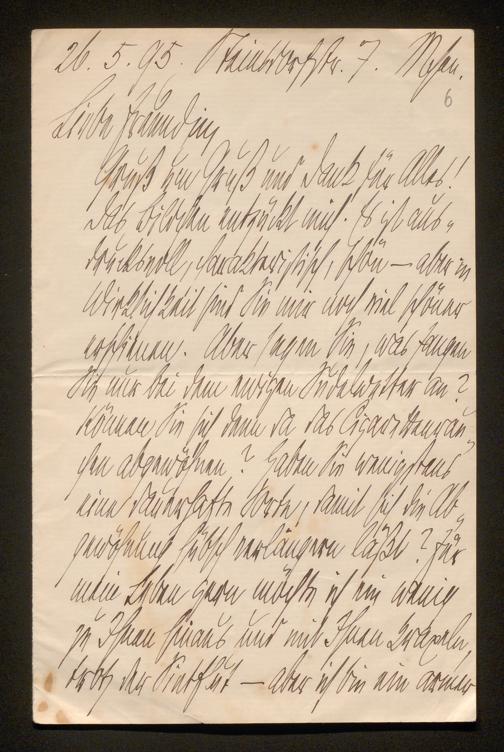 26. 5. 95. Steinsdorfstr. 7. Mchn.
6
Liebe Freundin
Gruß um Gruß und Dank für Alles!
Das Bildchen entzückt mich. Es ist aus-
drucksvoll, charakteristisch, schön — aber in
Wirklichkeit sind Sie mir noch viel schöner
erschienen. Aber sagen Sie, was fangen
Sie nur bei dem ewigen Sudelwetter an?
Können Sie sich denn da das Cigarettenrau-
chen abgewöhnen? Haben Sie wenigstens
eine dauerhafte Sorte, damit sich die Ab-
gewöhnung hübsch verlängern läßt? Für
mein Leben gern möchte ich ein wenig
zu Ihnen hinaus und mit Ihnen kraxeln,
trotz der Sintflut — aber ich bin ein armer